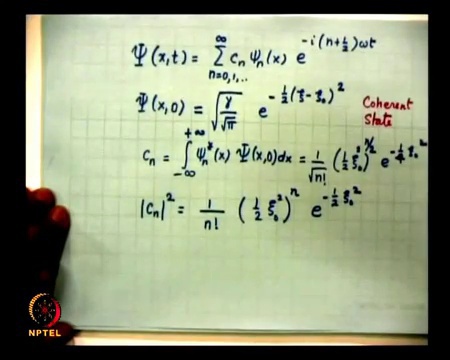 Ψ(x,t) = ∑_{n=0,1,..}^{∞} C_n ψ_n(x) e^{-i(n+½)ωt}
Ψ(x,0) = √(γ/√π) e^{-½(ξ-ξ₀)²} Coherent State
C_n = ∫_{-∞}^{+∞} ψ_n*(x) Ψ(x,0)dx = 1/√n! (½ ξ₀²)^{n/2} e^{-¼ξ₀²}
|C_n|² = 1/n! (½ ξ₀²)^n e^{-½ξ₀²}
NPTEL